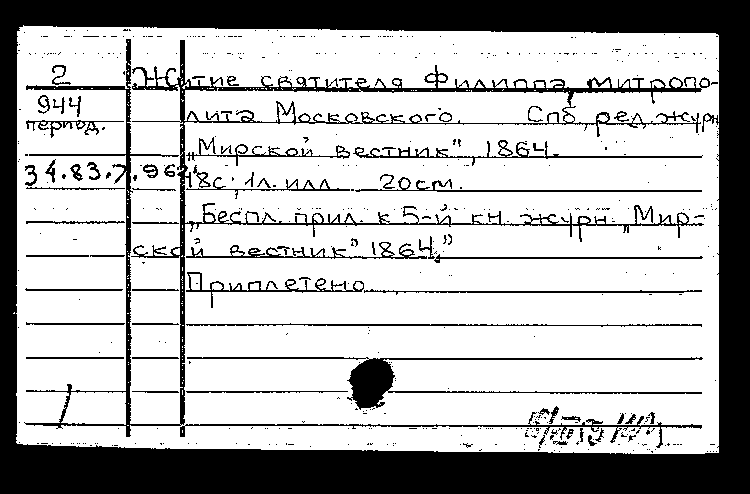 2 Житие святителя Филиппа, митропо-
944 лита Московского. Спб, ред. журн
период.
„Мирской вестник", 1864.
34.83.7.962 48с; 1л. илл. 20см.
„Беспл. прил. к 5-й кн. журн. „Мир-
ской вестник" 1864."
Приплетено.
1